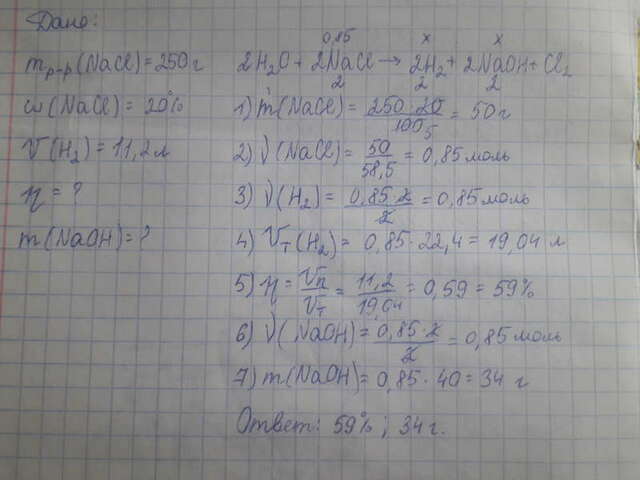 Дано:
m р-р (NaCl) = 250 г
ω (NaCl) = 20%
V(H₂) = 11,2 л
η = ?
m (NaOH) = ?
0,85 x x
2H₂O + 2NaCl → 2H₂ + 2NaOH + Cl₂
2 2 2
1) m(NaCl) = 250·20 / 100 = 50 г
2) ν(NaCl) = 50 / 58,5 = 0,85 моль
3) ν(H₂) = 0,85·2 / 2 = 0,85 моль
4) Vт(H₂) = 0,85·22,4 = 19,04 л
5) η = Vп / Vт = 11,2 / 19,04 = 0,59 = 59%
6) ν(NaOH) = 0,85·2 / 2 = 0,85 моль
7) m(NaOH) = 0,85·40 = 34 г
Ответ: 59%; 34 г.